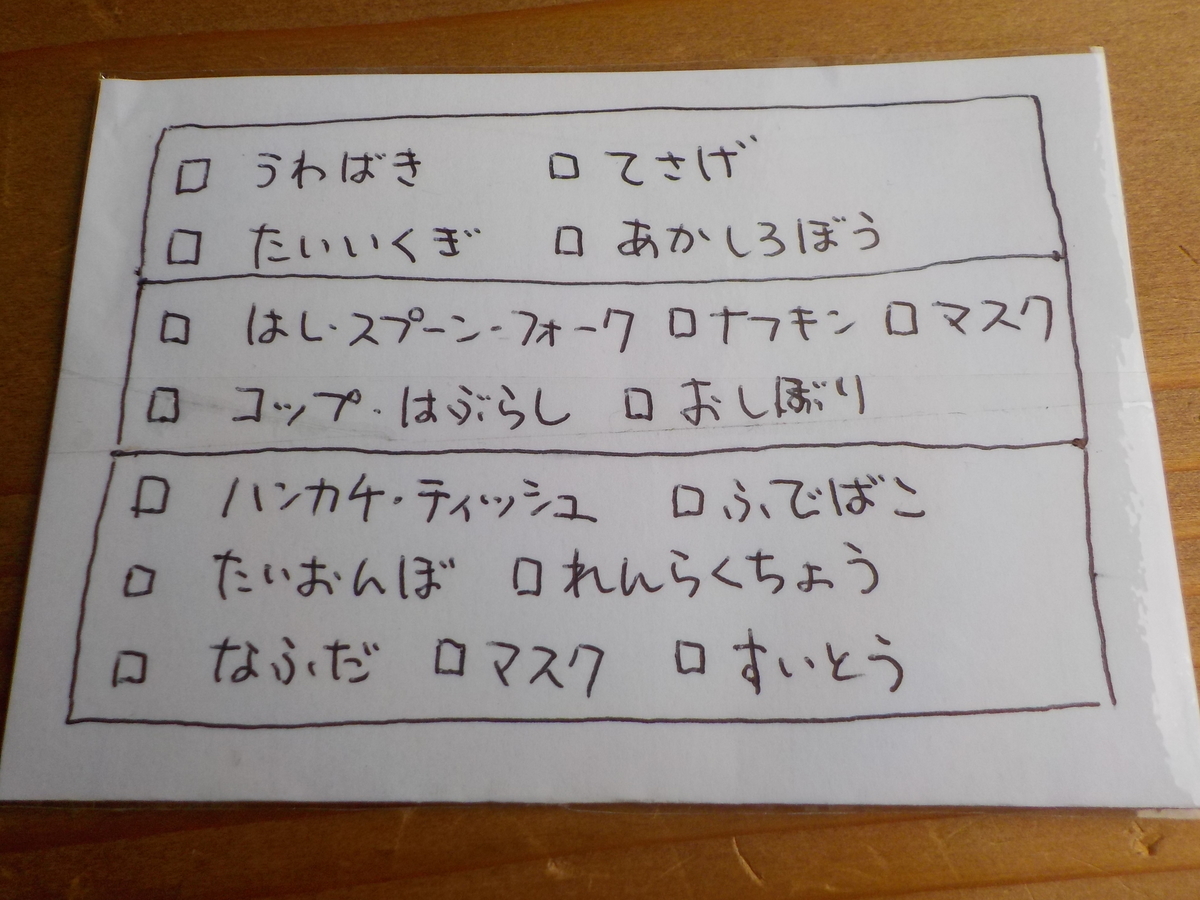 □ うわばき □ てさげ
□ たいいくぎ □ あかしろぼう
□ はし・スプーン・フォーク □ ナフキン □ マスク
□ コップ・はぶらし □ おしぼり
□ ハンカチ・ティッシュ □ ふでばこ
□ たいおんぼ □ れんらくちょう
□ なふだ □ マスク □ すいとう